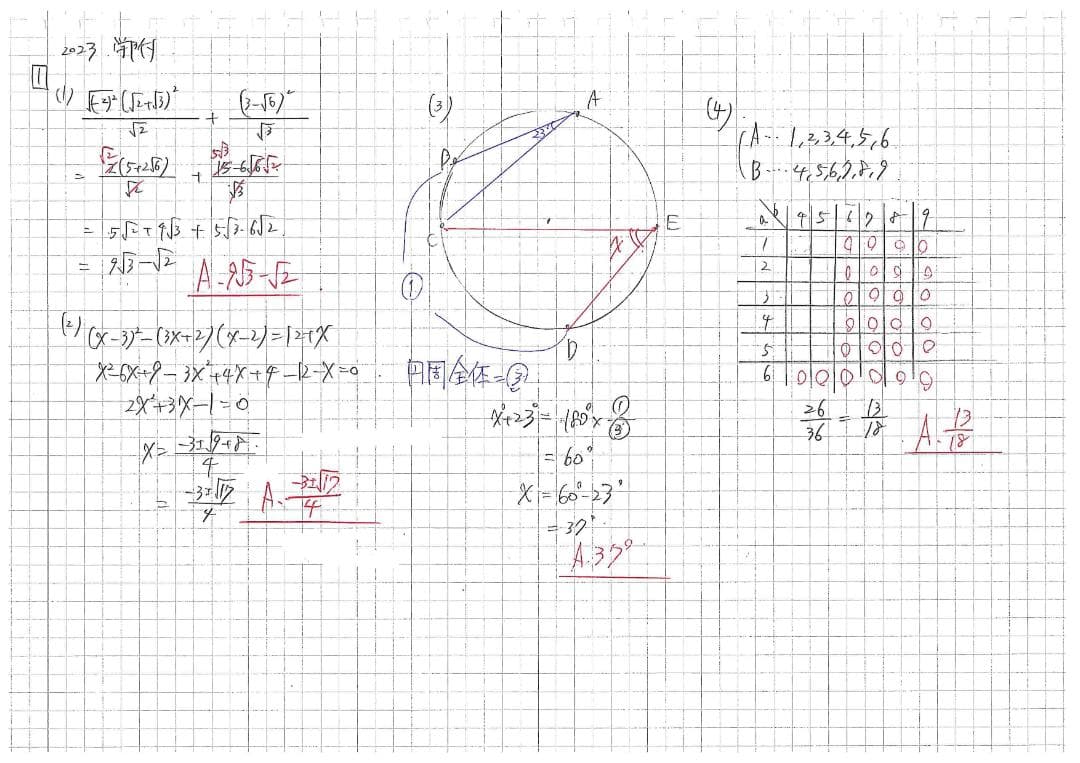 2023 学附
1
(1) √(-2)² (√2+√3)² / √2 + (3-√6)² / √3
= √2 2(5+2√6) / √2 + 5√3 15-6√6√2 / √3
= 5√2+4√3 + 5√3-6√2
= 9√3-√2
A. 9√3-√2
(2) (x-3)²-(3x+2)(x-2)=12+x
x²-6x+9-3x²+4x+4-12-x=0
2x²+3x-1=0
x= -3±√9+8 / 4
= -3±√17 / 4
A. -3±√17 / 4
(3)
A
23°
B
C
E
x
①
D
円周全体=③
x°+23°=180°× ①/③
=60°
x=60°-23°
=37°
A. 37°
(4)
A… 1,2,3,4,5,6
B… 4,5,6,7,8,9
a b 4 5 6 7 8 9
1 0 0 0 0
2 0 0 0 0
3 0 0 0 0
4 0 0 0 0
5 0 0 0 0
6 0 0 0 0 0 0
26/36 = 13/18
A. 13/18